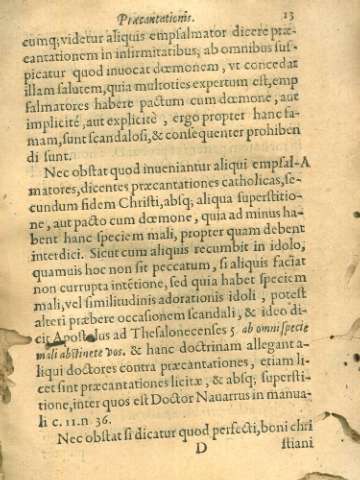 Præcantationis. 13
cumq; videtur aliquis empsalmator dicere præ-
cantationem in infirmitatibus, ab omnibus sus-
picatur quod inuocat dœmonem, vt concedat
illam salutem, quia multoties expertum est, emp
salmatores habere pactum cum dœmone, aut
implicitè, aut explicitè, ergo propter hanc fa-
mam, sunt scandalosi, & consequenter prohiben
di sunt.
Nec obstat quod inueniantur aliqui empsal-A
matores, dicentes præcantationes catholicas, se-
cundum fidem Christi, absq; aliqua superstitio-
ne, aut pacto cum dœmone, quia ad minus ha-
bent hanc speciem mali, propter quam debent
interdici. Sicut cum aliquis recumbit in idolo,
quamuis hoc non sit peccatum, si aliquis faciat
non currupta intētione, sed quia habet speciem
mali, vel similitudinis adorationis idoli, potest
alteri præbere occasionem scandali, & ideo di-
cit Apostolus ad Thesalonecenses 5. ab omni specie
mali abstinete vos. & hanc doctrinam allegant a-
liqui doctores contra præcantationes, etiam li-
cet sint præcantationes licitæ, & absq; supersti-
tione, inter quos est Doctor Nauarrus in manua-
li c. 11. n 36.
Nec obstat si dicatur quod perfecti, boni chri
D stiani